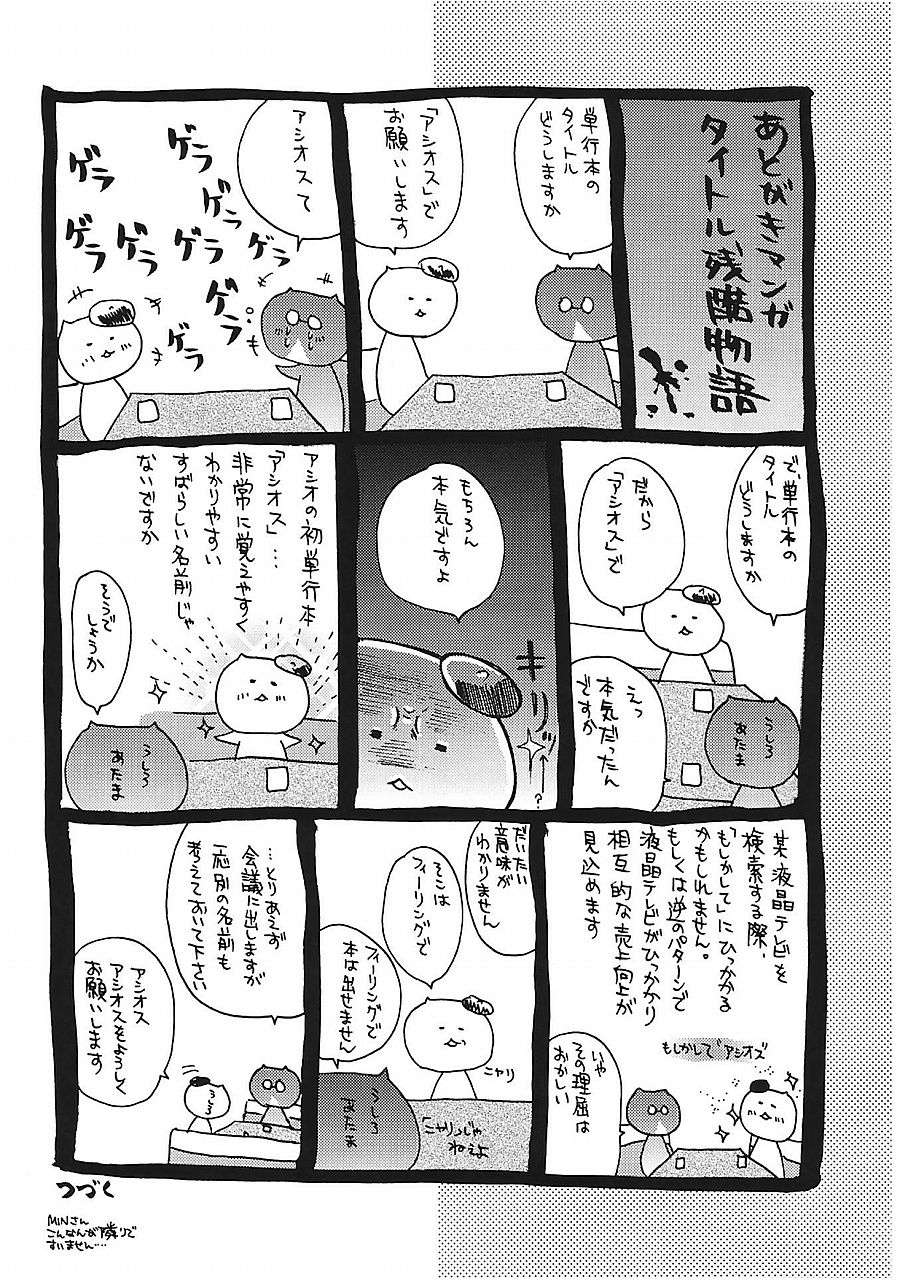 あとがきマンガ
タイトル残酷物語
単行本の
タイトル
どうしますか
「アシオス」で
お願いします
アシオスて
ゲラ
ゲラ
ゲラ
ゲラ
ゲラ
ゲラ
ゲラ
ゲラ
ゲラ
で、単行本の
タイトル
どうしますか
だから
「アシオス」で
えっ
本気だったん
ですか
うしろ
あたま
もちろん
本気ですよ
キリッ
?
アシオの初単行本
「アシオス」…
非常に覚えやすく
わかりやすい
すばらしい名前じゃ
ないですか
そうで
しょうか
うしろ
あたま
某液晶テレビを
検索する際、
「もしかして」にひっかかる
かもしれません。
もしくは逆のパターンで
液晶テレビがひっかかり
相互的な売上向上が
見込めます
もしかして アシオズ
いや
その理屈は
おかしい
だいたい
意味が
わかりません
そこは
フィーリングで
フィーリングで
本は出せません
ニヤリ
「ニヤリ」じゃ
ねえよ
うしろ
あたま
…とりあえず
会議に出しますが
一応別の名前も
考えておいて下さい
アシオス
アシオスをよろしく
お願いします
うしろ
つづく
MINさん
こんなんが隣りで
すいません…